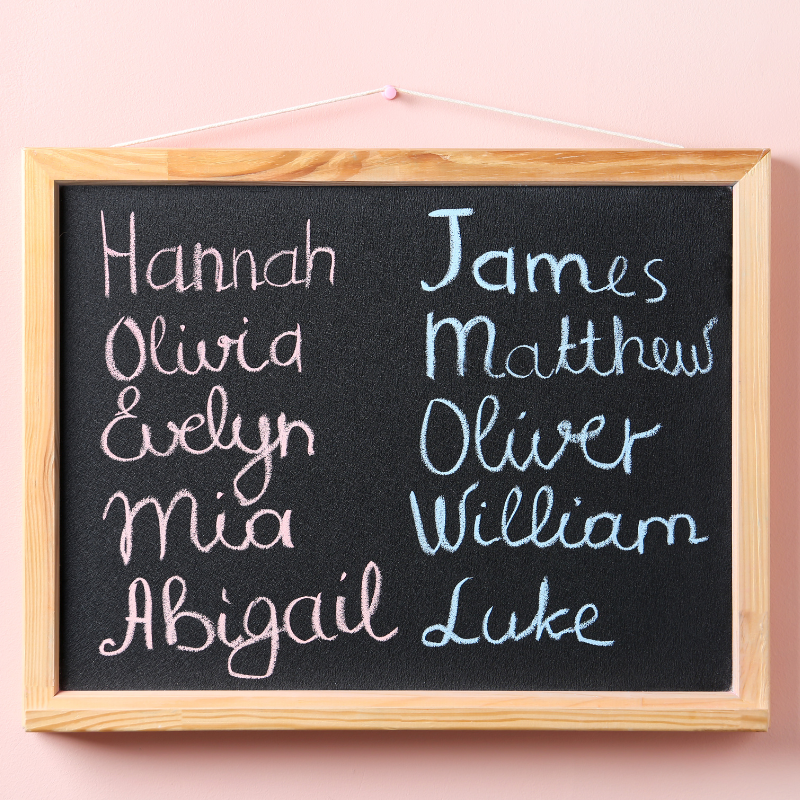 Hannah
Olivia
Evelyn
Mia
Abigail
James
Matthew
Oliver
William
Luke